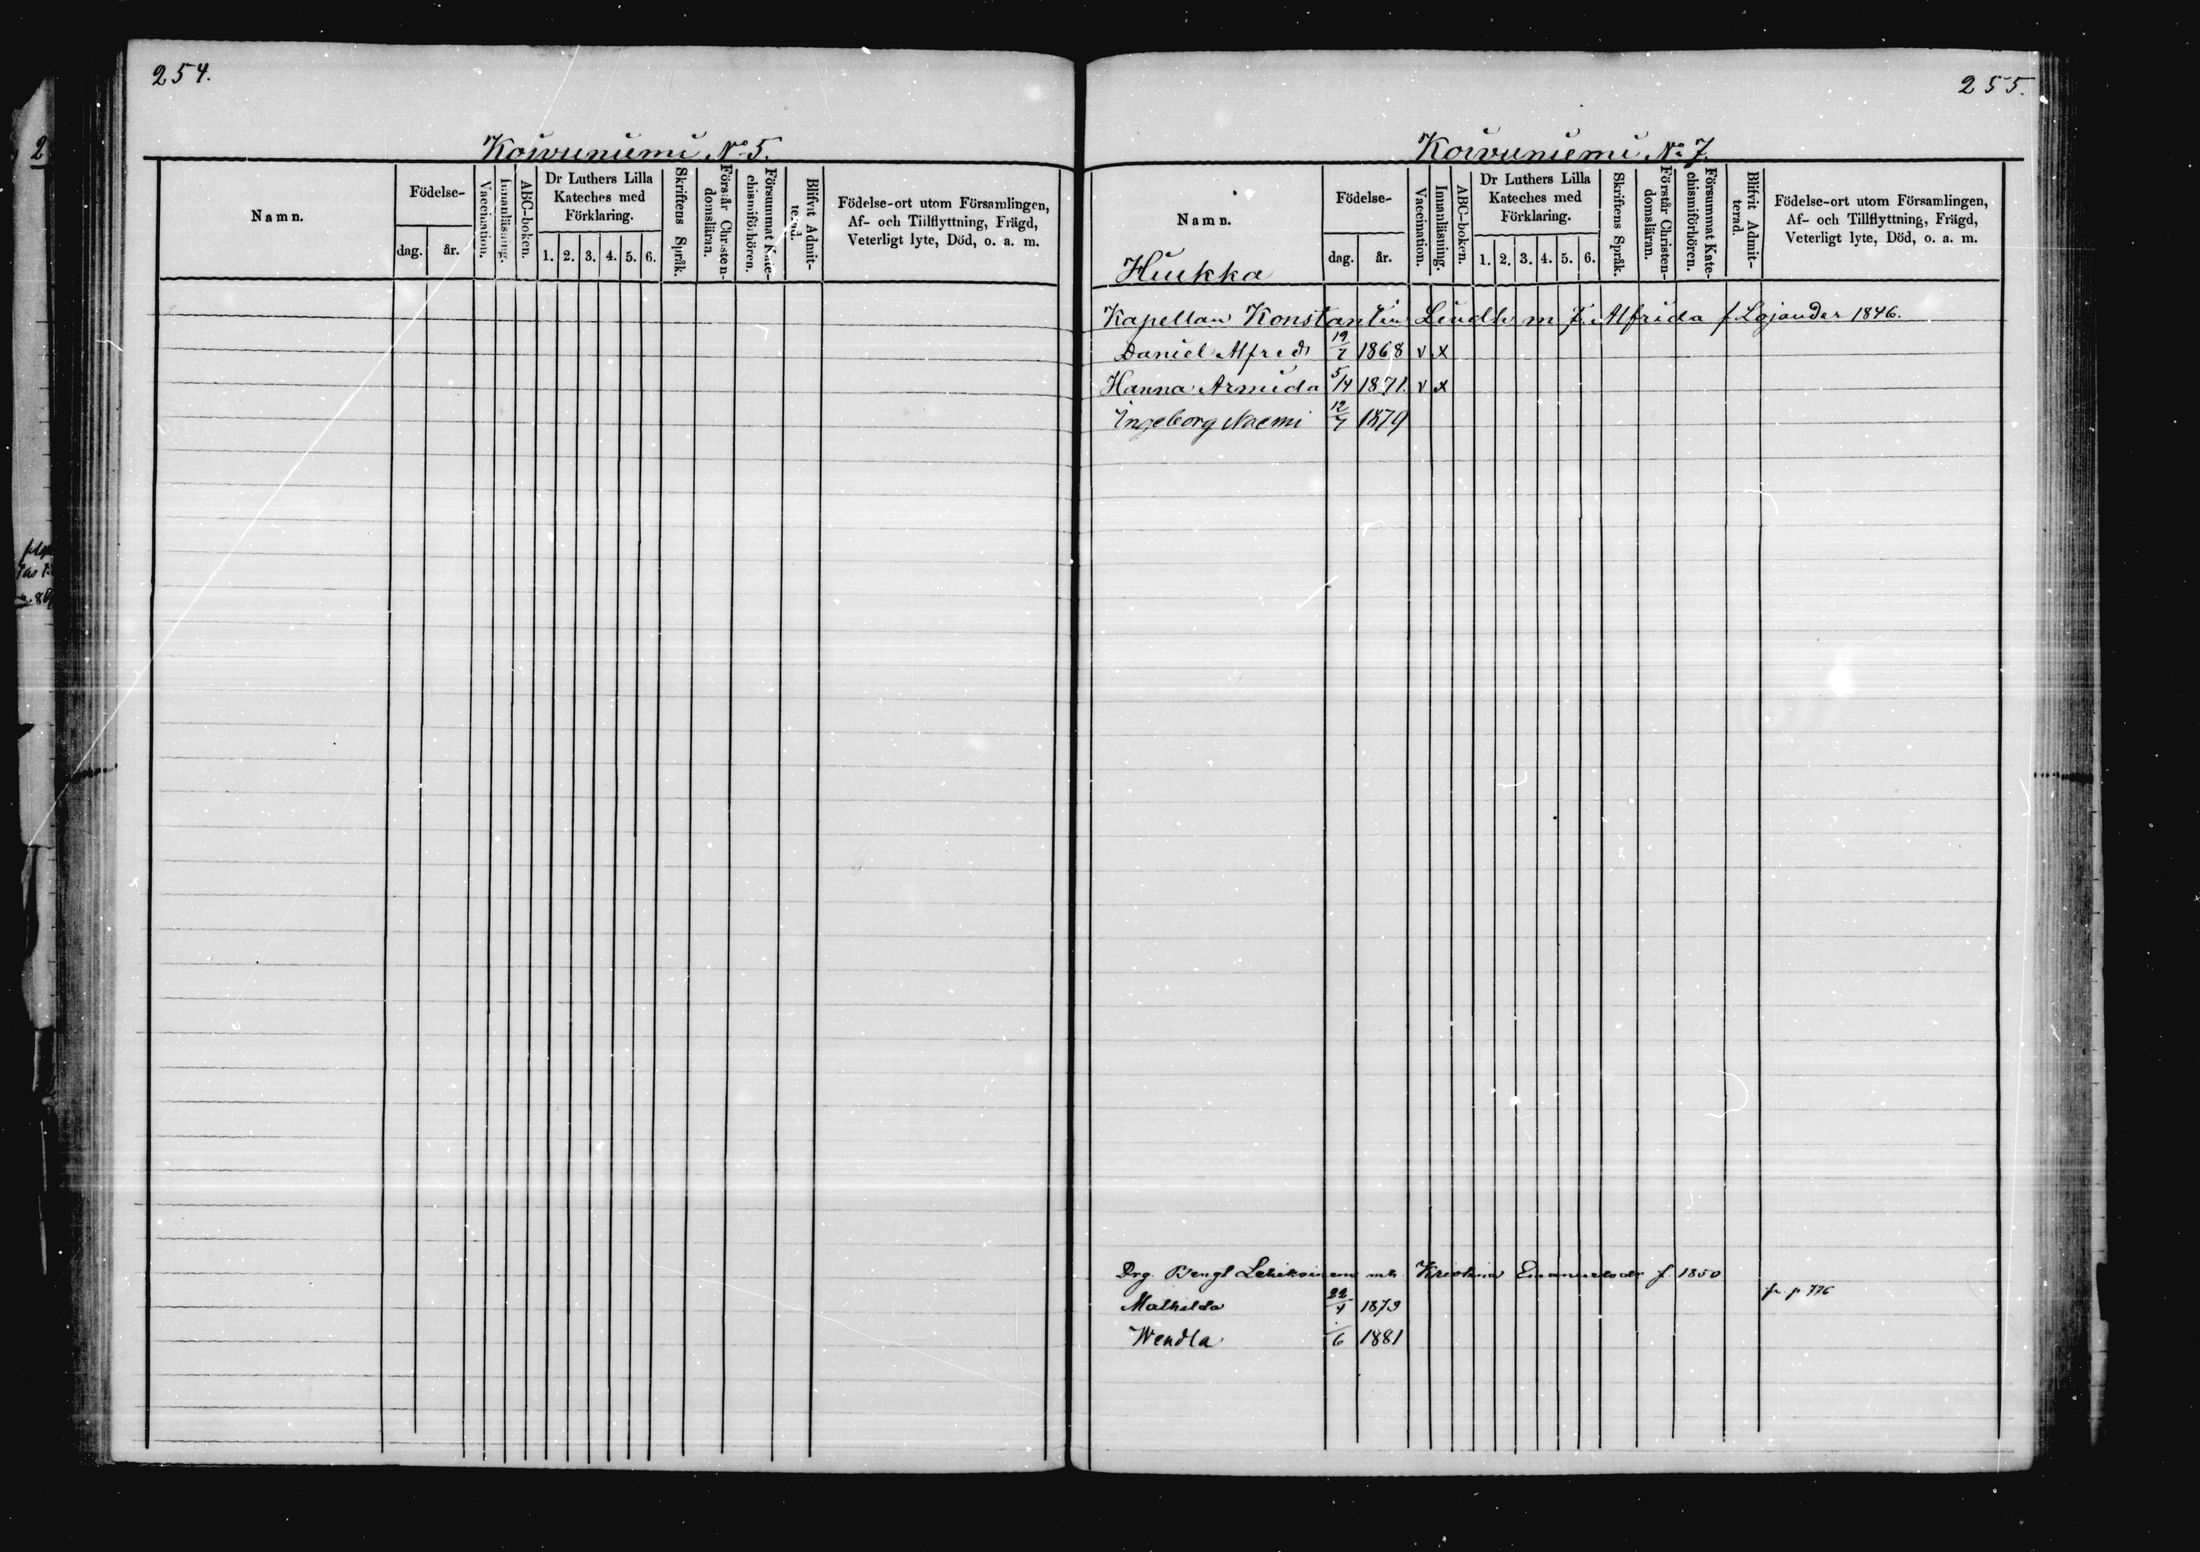 254.
Koivuniemi No 5.
Namn.
Födelse-
dag.
år.
Vaccination.
Innanläsning.
ABC-boken.
Dr Luthers Lilla
Kateches med
Förklaring.
1. 2. 3. 4. 5. 6.
Skriftens Språk.
Förstår Christen-
domsläran.
Försummat Kate-
chismiförhören.
Blifvit Admit-
terad.
Födelse-ort utom Församlingen,
Af- och Tillflyttning, Frägd,
Veterligt lyte, Död, o. a. m.
255.
Koivuniemi No 7.
Namn.
Födelse-
dag.
år.
Vaccination.
Innanläsning.
ABC-boken.
Dr Luthers Lilla
Kateches med
Förklaring.
1. 2. 3. 4. 5. 6.
Skriftens Språk.
Förstår Christen-
domsläran.
Försummat Kate-
chismiförhören.
Blifvit Admit-
terad.
Födelse-ort utom Församlingen,
Af- och Tillflyttning, Frägd,
Veterligt lyte, Död, o. a. m.
Hiukka
Kapellan Konstantin Lindh m Alfrida f Lojander 1846.
Daniel Alfred 1868 v x
Hanna Armida 5/4 1871. v x
Ingeborg Naemi 1879
Drg. Bengt mh f 1850
Mathilda 22/4 1879
Wendla 6 1881